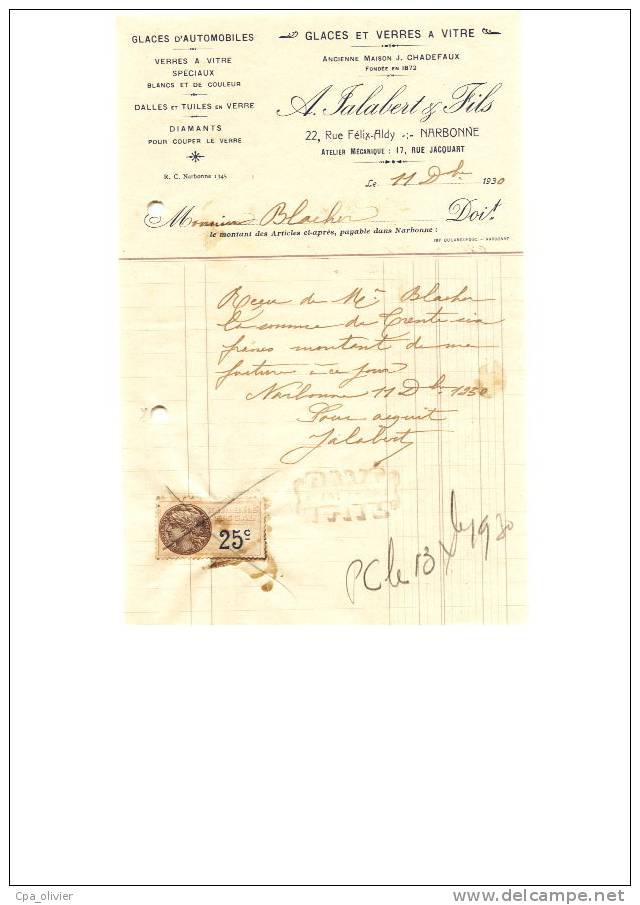 GLACES D'AUTOMOBILES
VERRES A VITRE
SPÉCIAUX
BLANCS ET DE COULEUR
DALLES ET TUILES EN VERRE
DIAMANTS
POUR COUPER LE VERRE
R. C. Narbonne 1345
GLACES ET VERRES A VITRE
ANCIENNE MAISON J. CHADEFAUX
FONDÉE EN 1872
A. Jalabert & Fils
22, Rue Félix-Aldy -:- NARBONNE
ATELIER MÉCANIQUE : 17, RUE JACQUART
Le 11 Dbre 1930
Monsieur Blacher Doit
le montant des Articles ci-après, payable dans Narbonne :
Reçu de Mr Blacher
la somme de Trente six
francs montant de ma
facture à ce jour
Narbonne 11 Dbre 1930
Pour acquit
Jalabert
25c
PC le 13 Xbre 1930
Cpa_olivier
www.delcampe.net